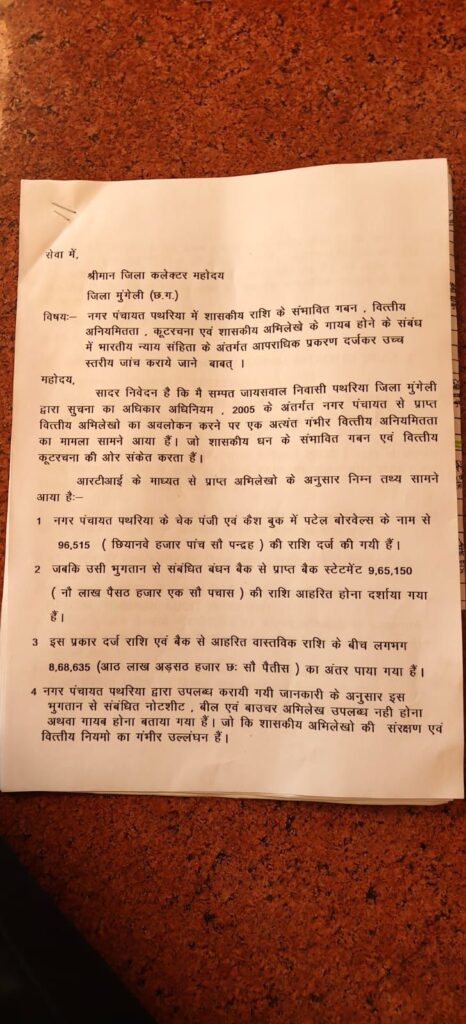 सेवा में,
श्रीमान जिला कलेक्टर महोदय
जिला मुंगेली (छ.ग.)
विषयः– नगर पंचायत पथरिया में शासकीय राशि के संभावित गबन , वित्तीय
अनियमितता , कूटरचना एवं शासकीय अभिलेखे के गायब होने के संबंध
में भारतीय न्याय संहिता के अंतर्गत आपराधिक प्रकरण दर्जकर उच्च
स्तरीय जांच कराये जाने बाबत् ।
महोदय,
सादर निवेदन है कि मै सम्पत जायसवाल निवासी पथरिया जिला मुंगेली
द्वारा सुचना का अधिकार अधिनियम , 2005 के अंतर्गत नगर पंचायत से प्राप्त
वित्तीय अभिलेखो का अवलोकन करने पर एक अत्यंत गंभीर वित्तीय अनियमितता
का मामला सामने आया हैं। जो शासकीय धन के संभावित गबन एवं वित्तीय
कूटरचना की ओर संकेत करता हैं।
आरटीआई के माध्यत से प्राप्त अभिलेखो के अनुसार निम्न तथ्य सामने
आया हैः–
1 नगर पंचायत पथरिया के चेक पंजी एवं कैश बुक में पटेल बोरवेल्स के नाम से
96,515 ( छियानवे हजार पांच सौ पन्द्रह ) की राशि दर्ज की गयी हैं।
2 जबकि उसी भुगतान से संबंधित बंधन बैक से प्राप्त बैक स्टेटमेंट 9,65,150
( नौ लाख पैसठ हजार एक सौ पचास ) की राशि आहरित होना दर्शाया गया
हैं।
3 इस प्रकार दर्ज राशि एवं बैक से आहरित वास्तविक राशि के बीच लगभग
8,68,635 (आठ लाख अड़सठ हजार छः सौ पैतीस ) का अंतर पाया गया हैं।
4 नगर पंचायत पथरिया द्वारा उपलब्ध करायी गयी जानकारी के अनुसार इस
भुगतान से संबंधित नोटशीट , बील एवं बाउचर अभिलेख उपलब्ध नही होना
अथवा गायब होना बताया गया हैं। जो कि शासकीय अभिलेखो की संरक्षण एवं
वित्तीय नियमो का गंभीर उल्लंघन हैं।